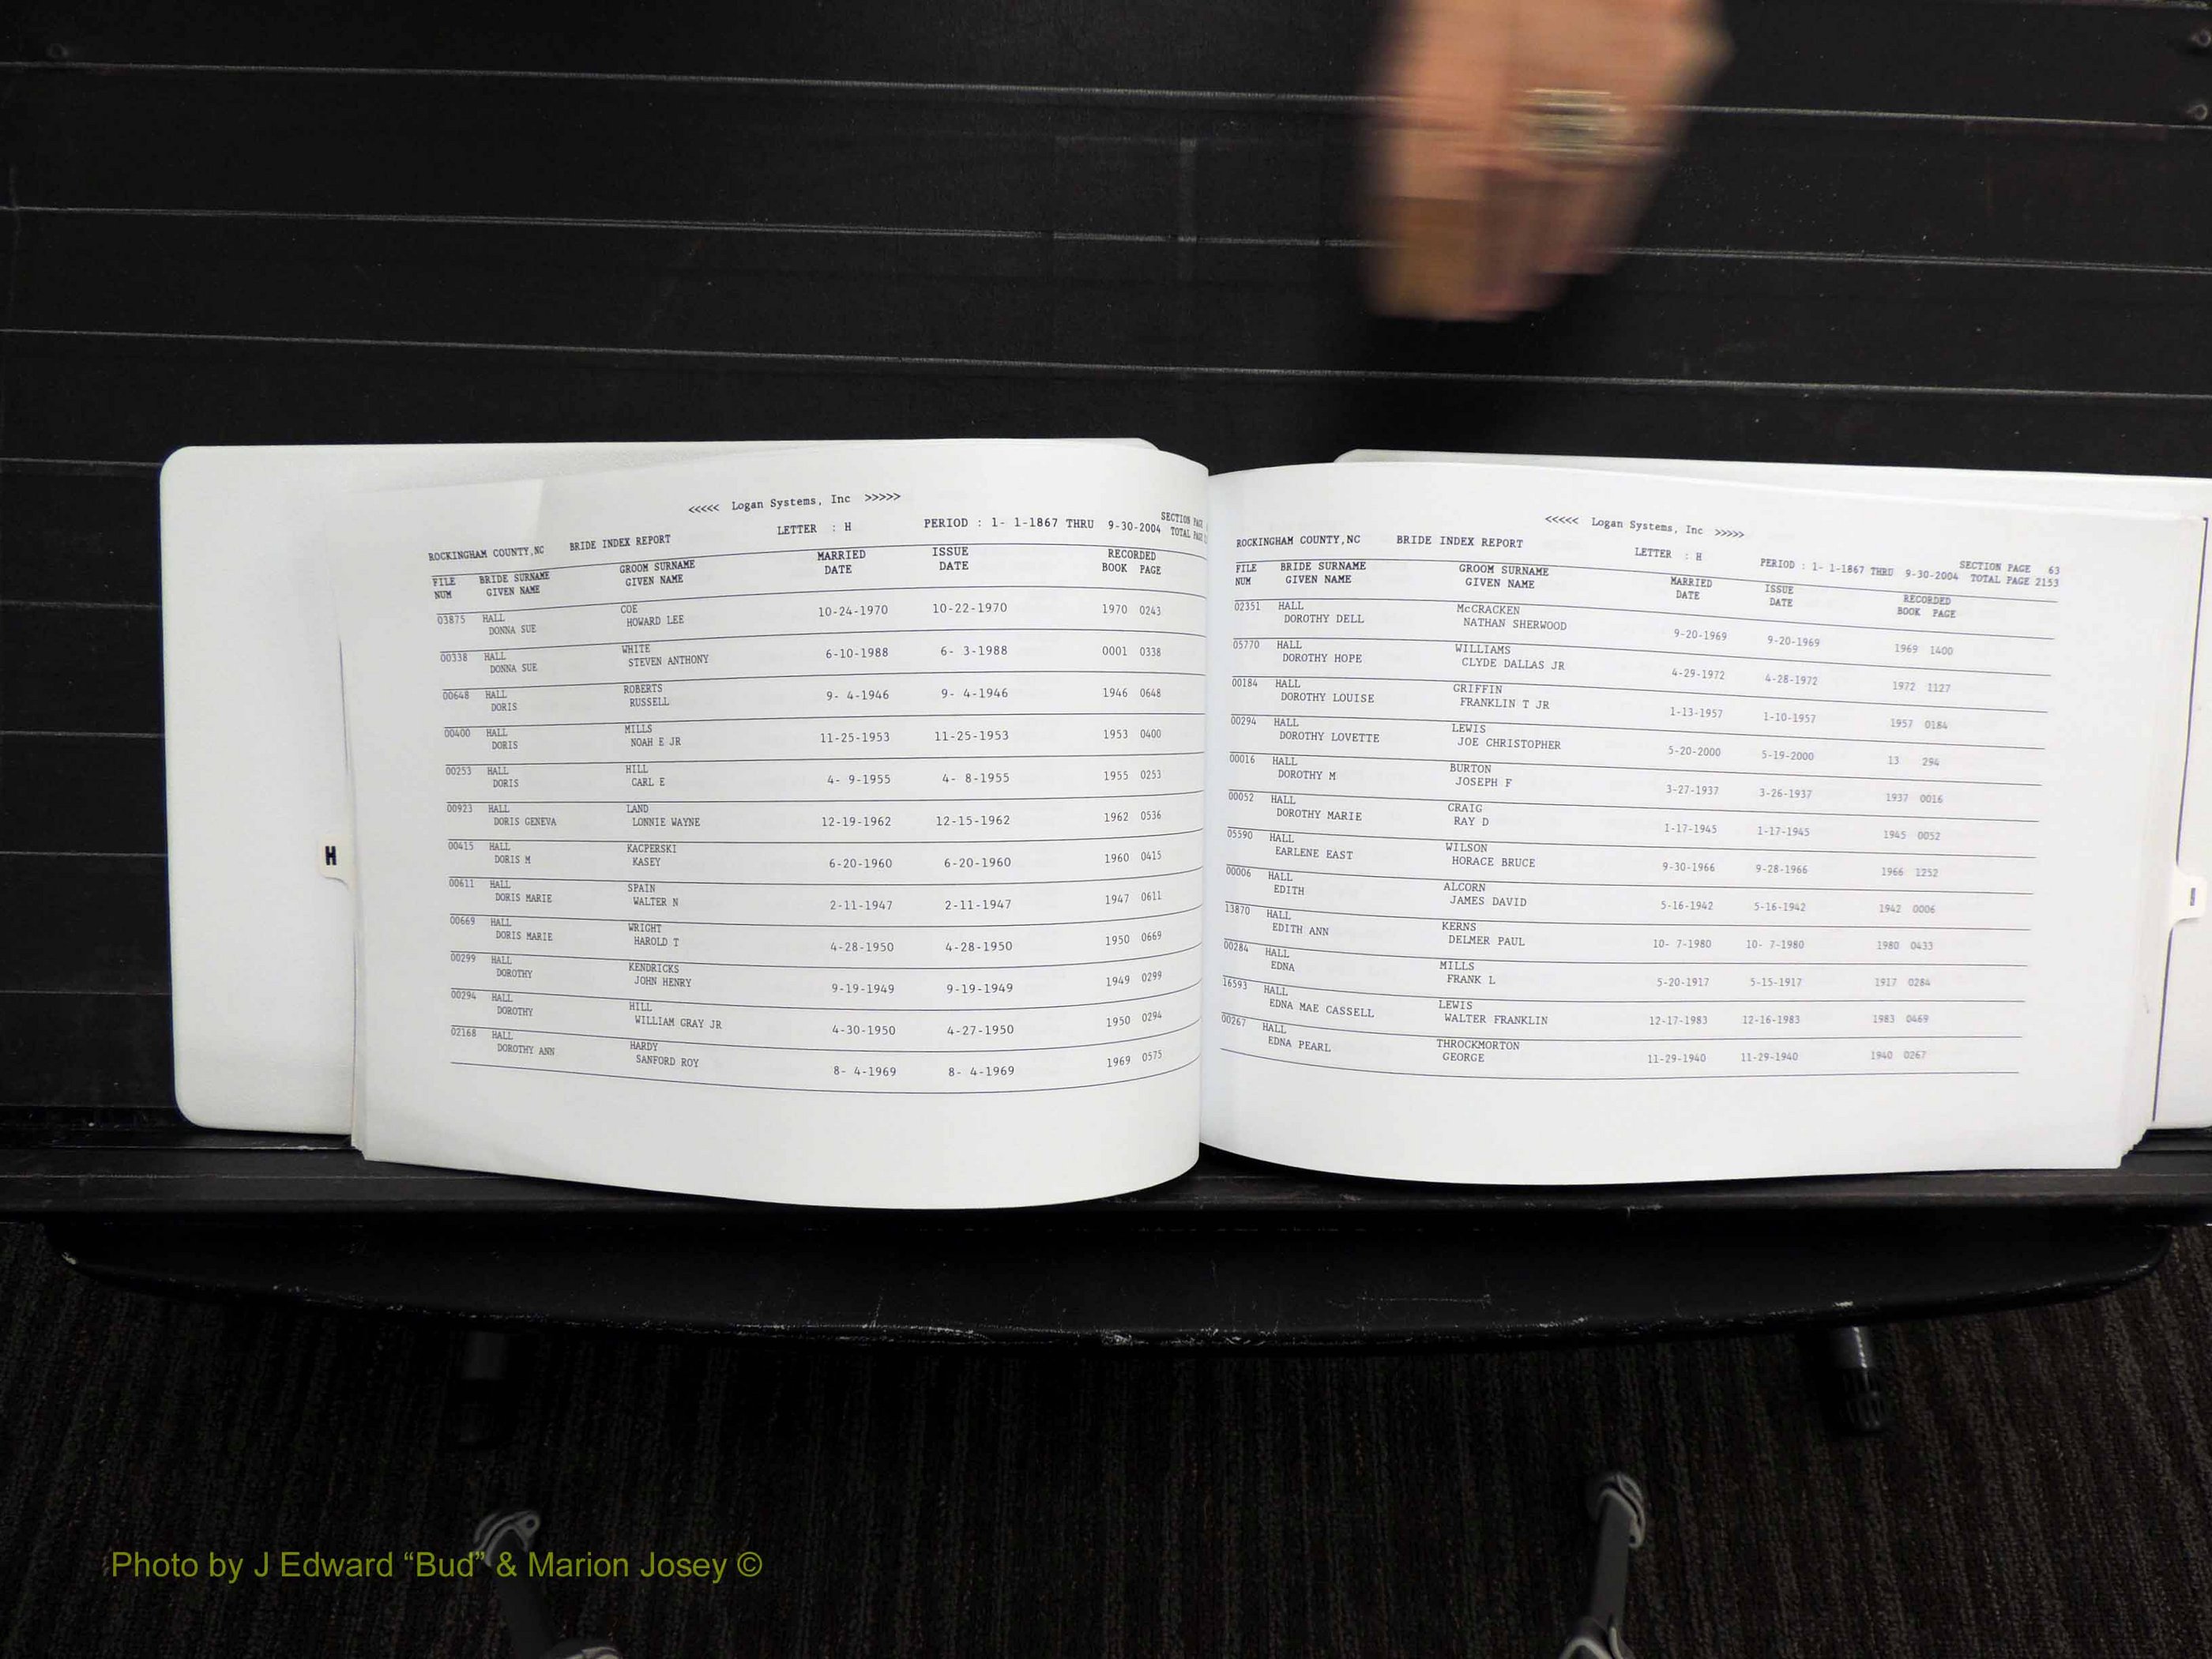 <<<<< Logan Systems, Inc >>>>>
ROCKINGHAM COUNTY,NC BRIDE INDEX REPORT LETTER : H PERIOD : 1- 1-1867 THRU 9-30-2004 SECTION PAGE
TOTAL PAGE
FILE BRIDE SURNAME GROOM SURNAME MARRIED ISSUE RECORDED
NUM GIVEN NAME GIVEN NAME DATE DATE BOOK PAGE
03875 HALL COE 10-24-1970 10-22-1970 1970 0243
DONNA SUE HOWARD LEE
00338 HALL WHITE 6-10-1988 6- 3-1988 0001 0338
DONNA SUE STEVEN ANTHONY
00648 HALL ROBERTS 9- 4-1946 9- 4-1946 1946 0648
DORIS RUSSELL
00400 HALL MILLS 11-25-1953 11-25-1953 1953 0400
DORIS NOAH E JR
00253 HALL HILL 4- 9-1955 4- 8-1955 1955 0253
DORIS CARL E
00923 HALL LAND 12-19-1962 12-15-1962 1962 0536
DORIS GENEVA LONNIE WAYNE
00415 HALL KACPERSKI 6-20-1960 6-20-1960 1960 0415
DORIS M KASEY
00611 HALL SPAIN 2-11-1947 2-11-1947 1947 0611
DORIS MARIE WALTER N
00669 HALL WRIGHT 4-28-1950 4-28-1950 1950 0669
DORIS MARIE HAROLD T
00299 HALL KENDRICKS 9-19-1949 9-19-1949 1949 0299
DOROTHY JOHN HENRY
00294 HALL HILL 4-30-1950 4-27-1950 1950 0294
DOROTHY WILLIAM GRAY JR
02168 HALL HARDY 8- 4-1969 8- 4-1969 1969 0575
DOROTHY ANN SANFORD ROY
H
<<<<< Logan Systems, Inc >>>>>
ROCKINGHAM COUNTY,NC BRIDE INDEX REPORT LETTER : H PERIOD : 1- 1-1867 THRU 9-30-2004 SECTION PAGE 63
TOTAL PAGE 2153
FILE BRIDE SURNAME GROOM SURNAME MARRIED ISSUE RECORDED
NUM GIVEN NAME GIVEN NAME DATE DATE BOOK PAGE
02351 HALL McCRACKEN 9-20-1969 9-20-1969 1969 1400
DOROTHY DELL NATHAN SHERWOOD
05770 HALL WILLIAMS 4-29-1972 4-28-1972 1972 1127
DOROTHY HOPE CLYDE DALLAS JR
00184 HALL GRIFFIN 1-13-1957 1-10-1957 1957 0184
DOROTHY LOUISE FRANKLIN T JR
00294 HALL LEWIS 5-20-2000 5-19-2000 13 294
DOROTHY LOVETTE JOE CHRISTOPHER
00016 HALL BURTON 3-27-1937 3-26-1937 1937 0016
DOROTHY M JOSEPH F
00052 HALL CRAIG 1-17-1945 1-17-1945 1945 0052
DOROTHY MARIE RAY D
05590 HALL WILSON 9-30-1966 9-28-1966 1966 1252
EARLENE EAST HORACE BRUCE
00006 HALL ALCORN 5-16-1942 5-16-1942 1942 0006
EDITH JAMES DAVID
13870 HALL KERNS 10- 7-1980 10- 7-1980 1980 0433
EDITH ANN DELMER PAUL
00284 HALL MILLS 5-20-1917 5-15-1917 1917 0284
EDNA FRANK L
16593 HALL LEWIS 12-17-1983 12-16-1983 1983 0469
EDNA MAE CASSELL WALTER FRANKLIN
00267 HALL THROCKMORTON 11-29-1940 11-29-1940 1940 0267
EDNA PEARL GEORGE
I
Photo by J Edward “Bud” & Marion Josey ©